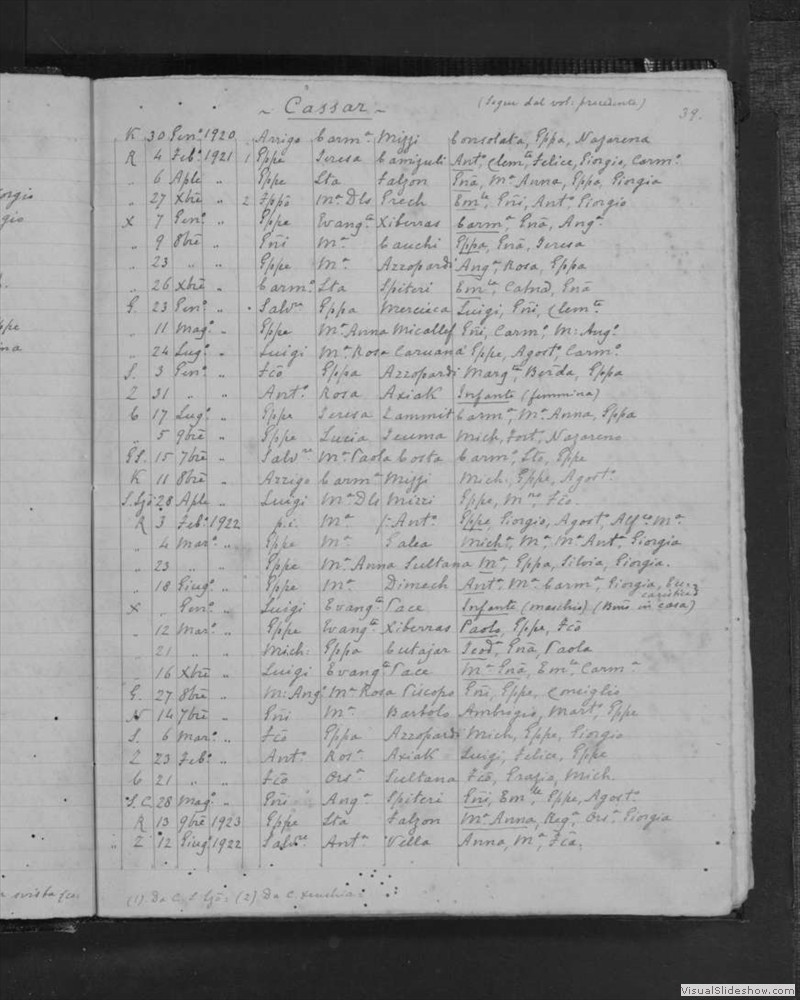 ~ Cassar ~ (Segue dal vol: precedente) 39.
K 30 Gen.º 1920 Arrigo Carm.ª Mizzi Consolata, Gppa, Nazarena
R 4 Feb.º 1921 1 Gppe Teresa Camizuli Ant.º, Clem.te, Felice, Giorgio, Carm.º
„ 6 Aple „ Gppe Sta Falzon Gnã, M.ª Anna, Gppa, Giorgia
„ 27 Xbrẽ „ 2 M.ª Dls Grech Em.le, Gñi, Ant.º Giorgio
X 7 Gen.º „ Gppe Evang.ta Xiberras Carm.ª, Gnã, Ang.ª
„ 9 8brẽ „ Gñi M.ª Cauchi Gppa, Gnã, Teresa
„ 23 „ „ Gppe M.ª Azzopardi Ang.ª, Rosa, Gppa
„ 26 Xbrẽ „ Carm.º Sta Spiteri Em.la, Catnã, Gnã
G. 23 Gen.º „ Salv.re Gppa Mercieca Luigi, Gñi, Clem.te
„ 11 Mag.º „ Gppe M.ª Anna Micallef Gñi, Carm.º, M: Ang.º
„ 24 Lug.º „ Luigi M.ª Rosa Caruana Gppe, Agost.º, Carm.º
S. 3 Gen.º „ Fcõ Gppa Azzopardi Marg.ta, Gppa
Z 31 „ „ Ant.º Rosa Axiak Infante (femmina)
C 17 Lug.º „ Gppe Teresa Zammit Carm.ª, M.ª Anna, Gppa
„ 5 9brẽ „ Gppe Lucia Scuma Mich, Fort, Nazareno
GS. 15 7brẽ „ Salv.re M.ª Paola Costa Carm.º, Sto, Gppe
K 11 8brẽ „ Arrigo Carm.ª Mizzi Mich, Gppe, Agost.º
S. Lzõ 28 Aple „ Luigi M.ª Dls Mizzi Gppe, M.no, Fcõ
R 3 Feb.º 1922 p.i. M.ª f: Ant.º Gppe, Giorgio, Agost.º M.ª
„ 4 Mar.º „ Gppe M.ª Galea Mich.ª, M.ª M.ª Ant.ª Giorgia
„ 23 „ „ Gppe M.ª Anna Sultana M.ª, Gppa, Silvia, Giorgia.
„ 18 Giug.º „ Gppe M.ª Dimech Ant.ª M.ª Carm.ª, Giorgia, Eucaristica
X „ Gen.º „ Luigi Evang.ta Pace Infante (maschio) (Bmo in casa)
„ 12 Mar.º „ Gppe Evang.ta Xiberras Paolo, Gppe, Fcõ
„ 21 „ „ Mich: Gppa Cutajar Teod.ª, Gnã, Paola
„ 16 Xbrẽ „ Luigi Evang.ta Pace M.ª Gnã, Em.la, Carm.ª
G. 27 8brẽ „ M: Ang.º M.ª Rosa Piscopo Gñi, Gppe, Consiglio
N 14 7brẽ „ Gñi M.ª Barbolo Ambrogio, Mart.º, Gppe
S. 6 Mar.º „ Fcõ Gppa Azzopardi Mich, Gppe, Giorgio
Z 23 Feb.º „ Ant.º Ros.ª Axiak Luigi, Felice, Gppe
C 21 „ „ Fcõ Ors.ª Sultana Fcõ, Grazio, Mich
S.C. 28 Mag.º „ Gñi Ang.ª Spiteri Gñi, Em.le, Gppe, Agost.º
R 13 9brẽ 1923 Gppe Sta Falzon M.ª Anna, Reg.ª, Ors.ª, Giorgia
Z 12 Giug.º 1922 Salv.re Ant.ª Vella Anna, M.ª, Fcã.
(1) Da C. S. Lzõ: (2) Da C. Xeuchia.
VisualSlideshow.com